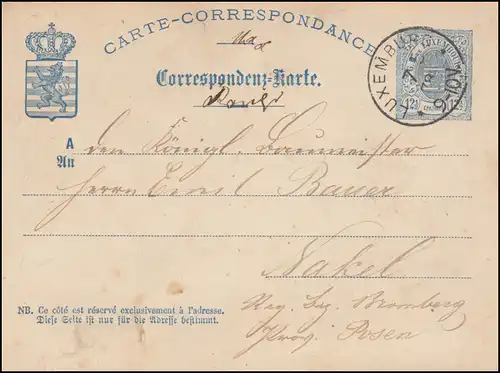 CARTE-CORRESPONDANCE
Correspondenz-Karte.
LUXEMBURG
9-10V
12½
A
An
den Königl. Baumeister
Herrn Emil Bauer
Nakel
Reg. Bez. Bromberg
Prov. Posen
NB. Ce côté est réservé exclusivement à l'adresse.
Diese Seite ist nur für die Adresse bestimmt.